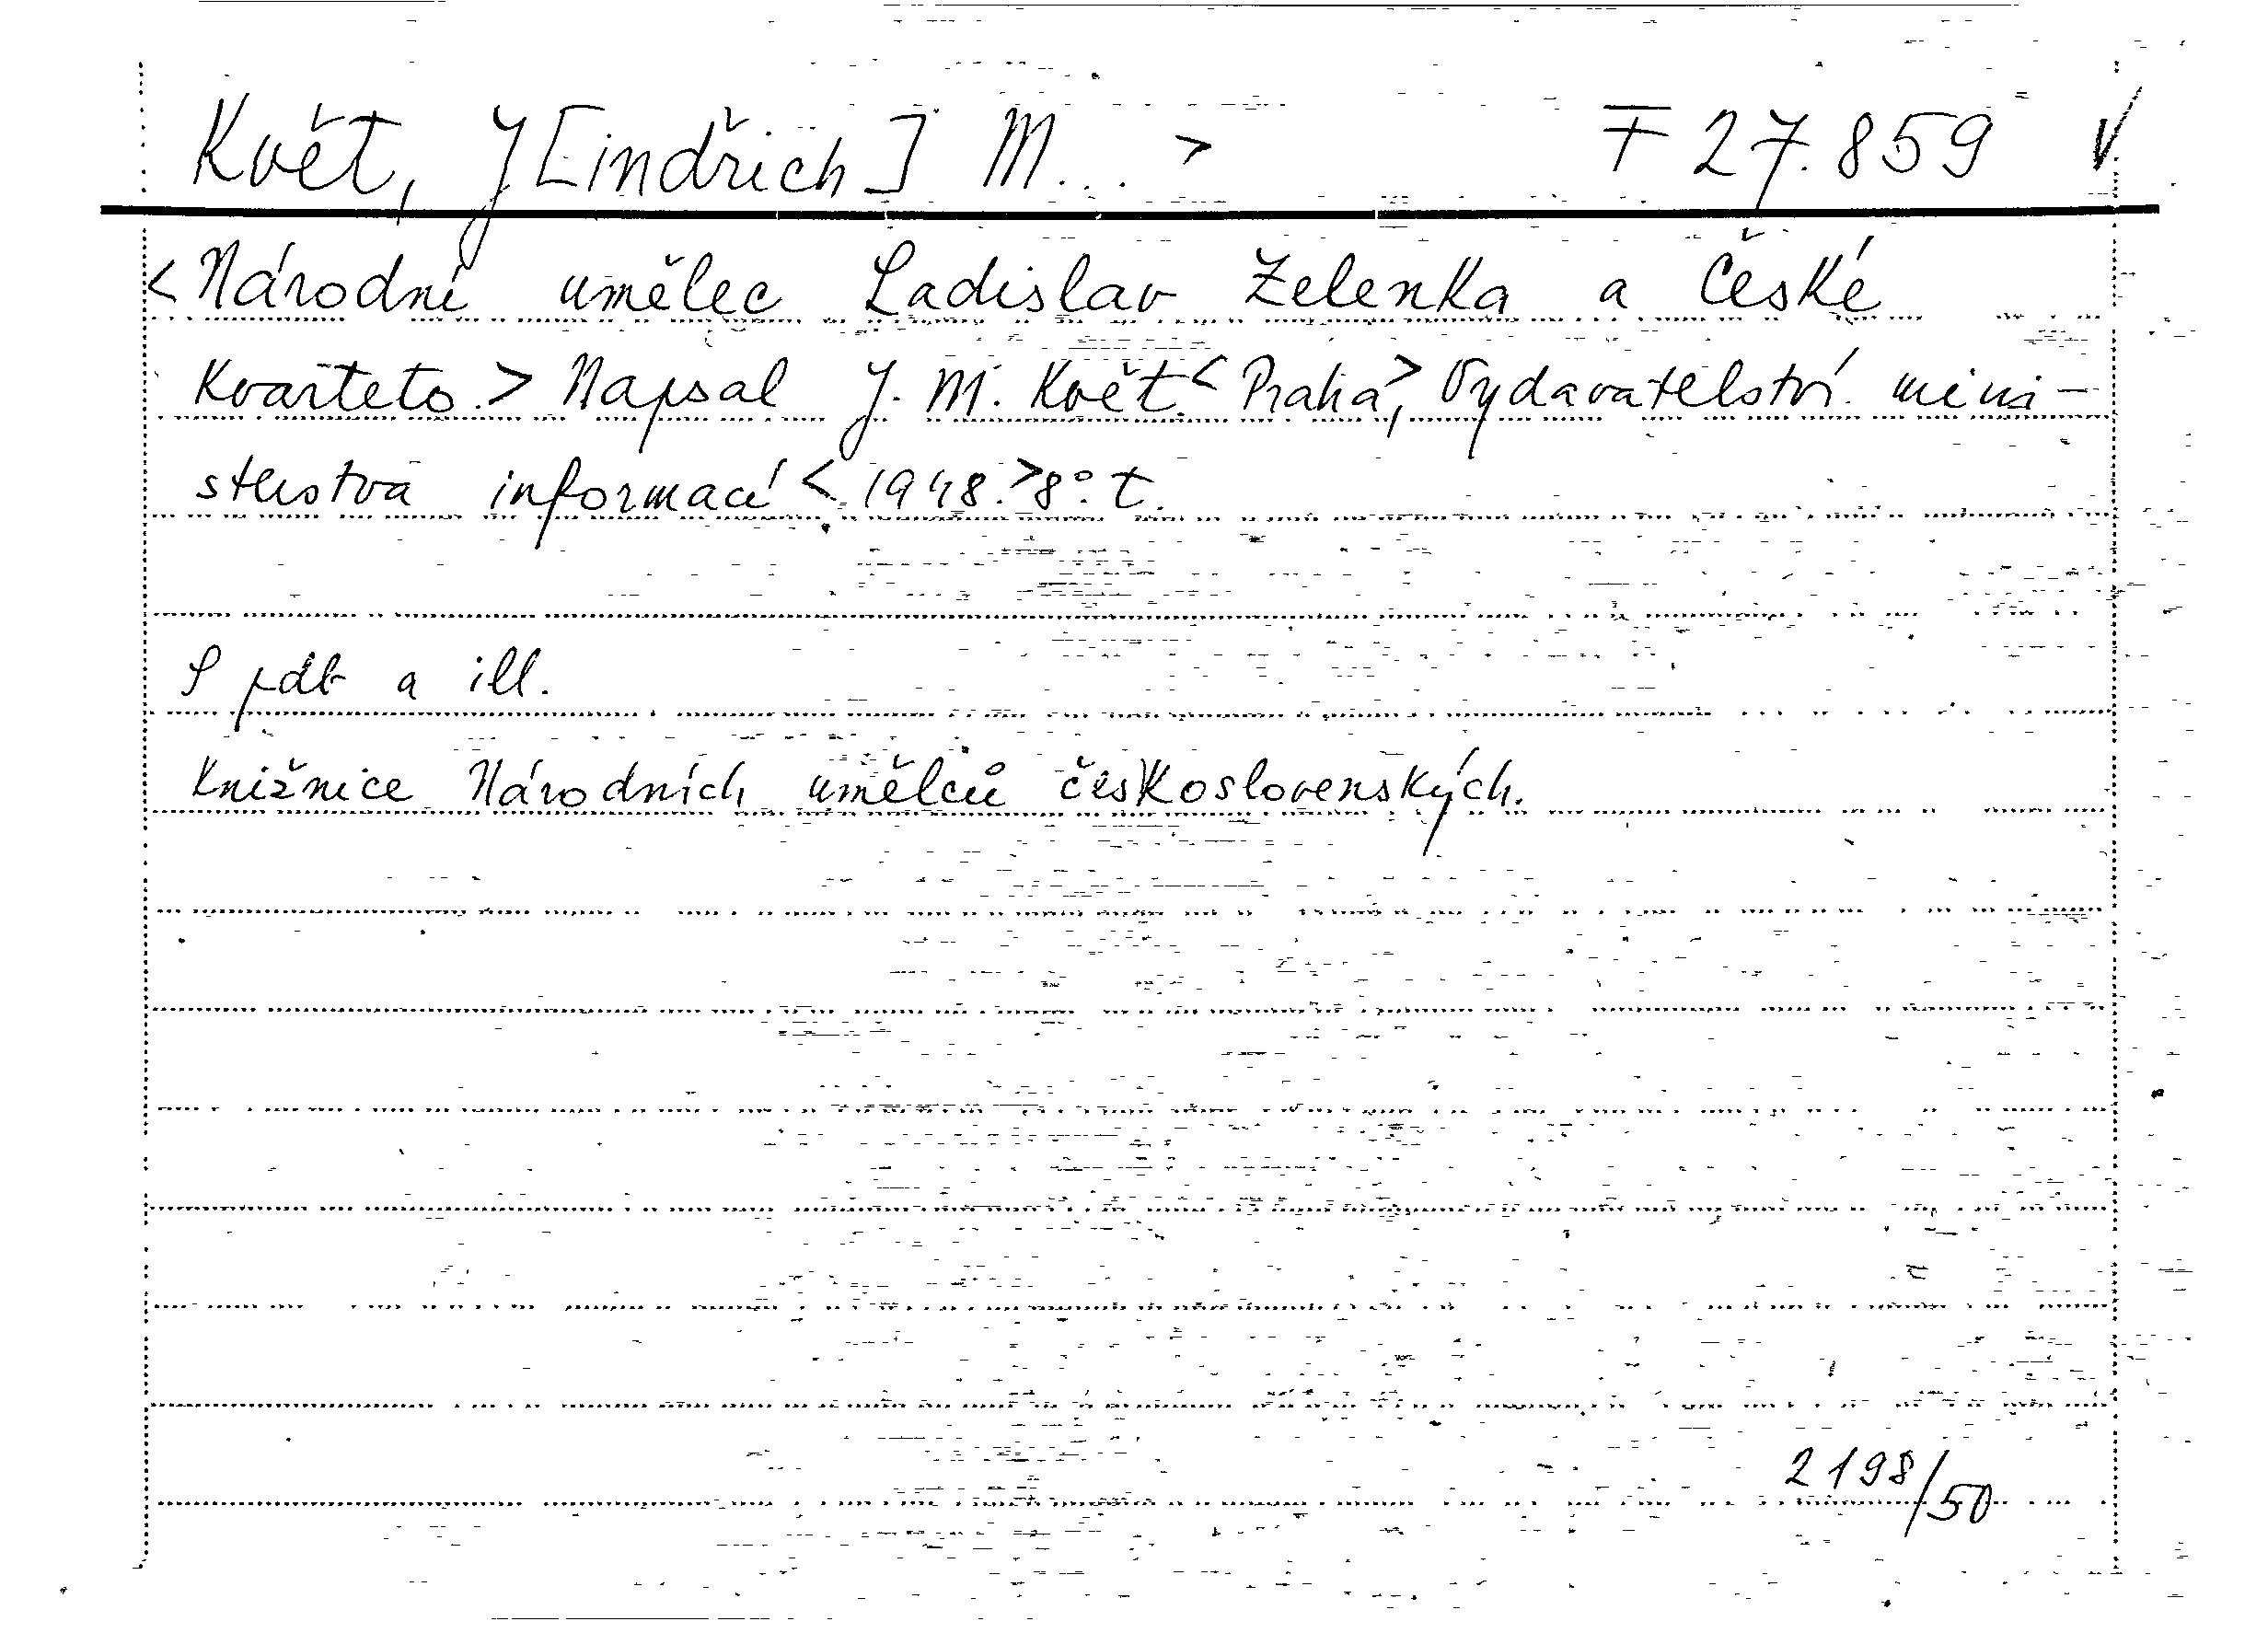 Květ, J[indřich] M... > F 27.859 V.
<Národní umělec Ladislav Zelenka a České
kvarteto.> Napsal J. M. Květ. <Praha>, Vydavatelství mini-
sterstva informací <1948.> 8°. t.
S pdb a ill.
Knižnice Národních umělců československých.
2198/50